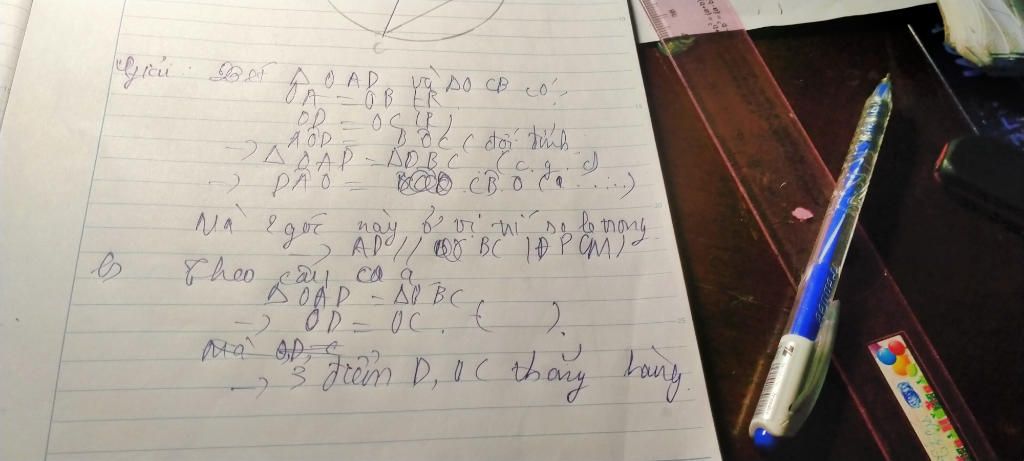 C
Giải: Xét Δ OAD và ΔOCB có:
OA = OB (R
OD = OC (R)
AOD = BOC ( đối đỉnh
-> Δ OAD = ΔOBC (c.g.c)
-> DAO = CBO (2.....)
Mà 2 góc này ở vị trí so le trong
-> AD // BC (ĐPCM)
b) Theo câu a
ΔOAD = ΔOBC
-> OD = OC. ( ).
Mà OD =
-> 3 điểm D, O C thẳng hàng.